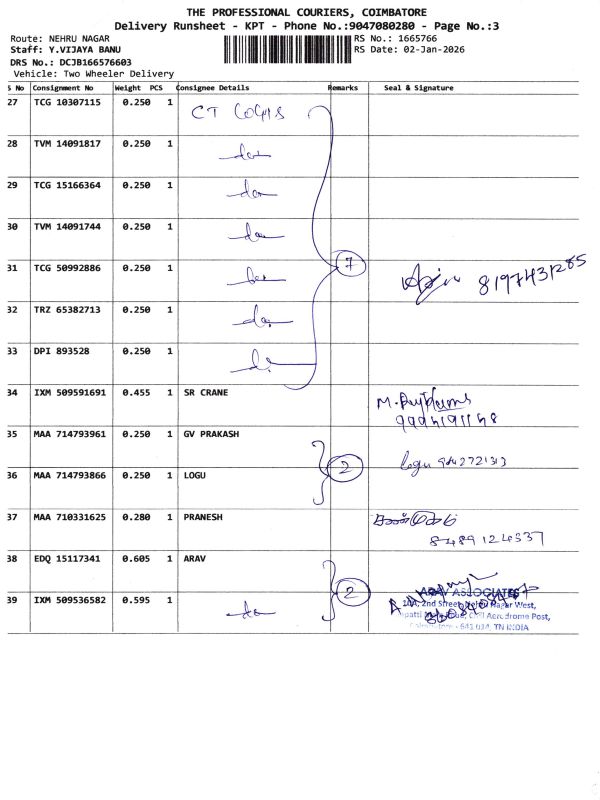 THE PROFESSIONAL COURIERS, COIMBATORE
Delivery Runsheet - KPT - Phone No.:9047080280 - Page No.:3
Route: NEHRU NAGAR RS No.: 1665766
Staff: Y.VIJAYA BANU RS Date: 02-Jan-2026
DRS No.: DCJB166576603
Vehicle: Two Wheeler Delivery
S No Consignment No Weight PCS Consignee Details Remarks Seal & Signature
27 TCG 10307115 0.250 1 CT LOGIS
28 TVM 14091817 0.250 1 do
29 TCG 15166364 0.250 1 do
30 TVM 14091744 0.250 1 do
31 TCG 50992886 0.250 1 do 7 8197431285
32 TRZ 65382713 0.250 1 do
33 DPI 893528 0.250 1 do
34 IXM 509591691 0.455 1 SR CRANE
35 MAA 714793961 0.250 1 GV PRAKASH
36 MAA 714793866 0.250 1 LOGU 2 Logu
37 MAA 710331625 0.280 1 PRANESH
38 EDQ 15117341 0.605 1 ARAV
39 IXM 509536582 0.595 1 do 2
ARAV ASSOCIATES
2nd Street, Nehru Nagar West,
Civil Aerodrome Post,
- 641 014, TN INDIA